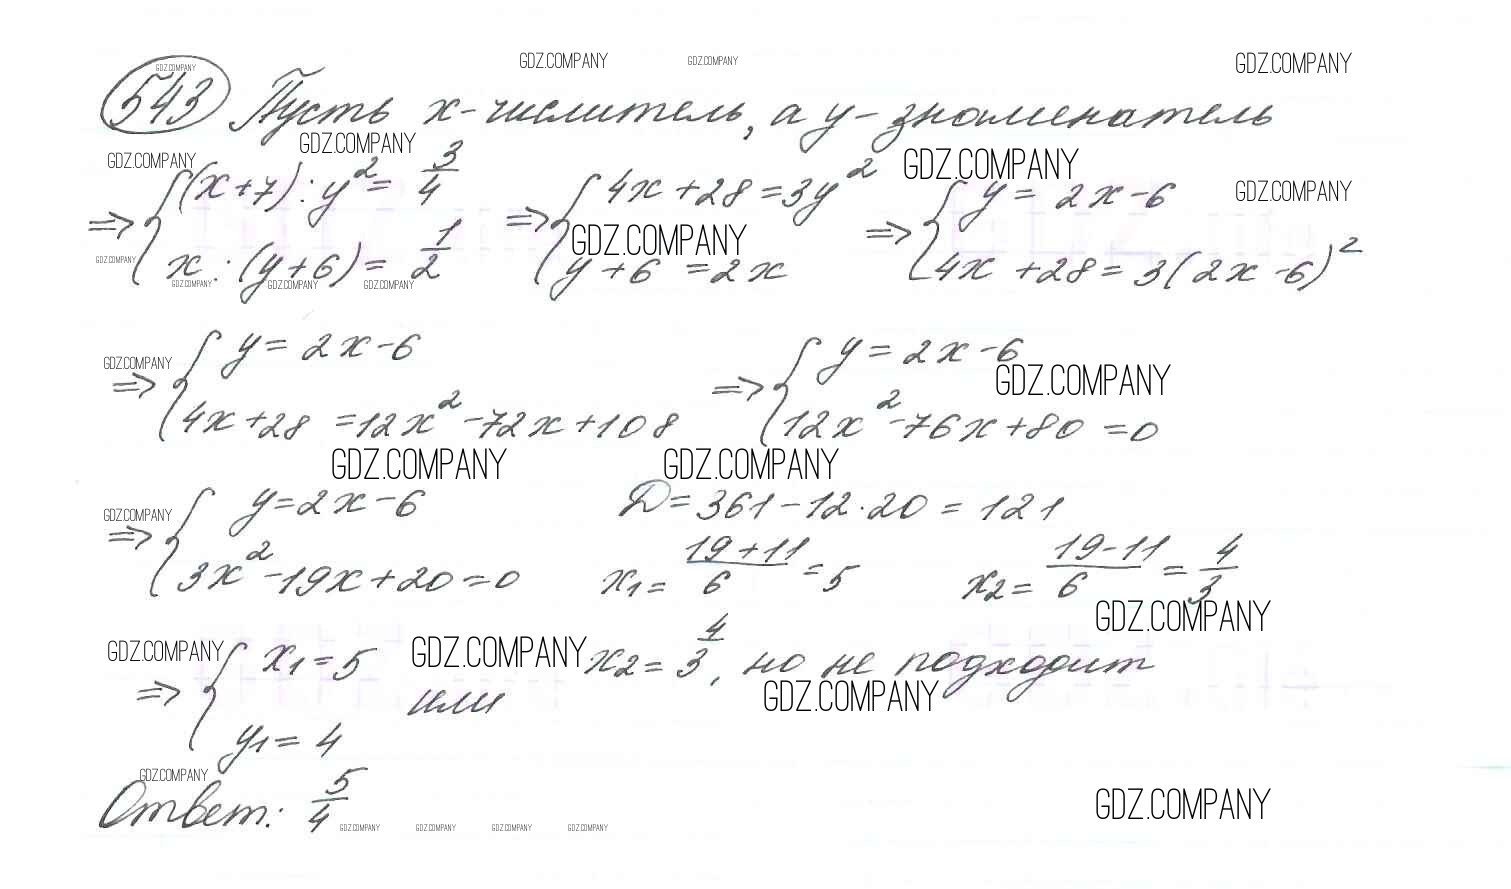 GDZ.COMPANY GDZ.COMPANY GDZ.COMPANY GDZ.COMPANY
543 Пусть x - числитель, а y - знаменатель
GDZ.COMPANY GDZ.COMPANY GDZ.COMPANY GDZ.COMPANY
=> { (x+7) : y² = 3/4 => { 4x + 28 = 3y² => { y = 2x - 6
GDZ.COMPANY GDZ.COMPANY
x : (y+6) = 1/2 y + 6 = 2x 4x + 28 = 3(2x - 6)²
GDZ.COMPANY GDZ.COMPANY GDZ.COMPANY
GDZ.COMPANY GDZ.COMPANY
=> { y = 2x - 6 => { y = 2x - 6
4x + 28 = 12x² - 72x + 108 12x² - 76x + 80 = 0
GDZ.COMPANY GDZ.COMPANY
GDZ.COMPANY
=> { y = 2x - 6 D = 361 - 12 · 20 = 121
3x² - 19x + 20 = 0 x1 = (19+11)/6 = 5 x2 = (19-11)/6 = 4/3
GDZ.COMPANY
GDZ.COMPANY GDZ.COMPANY
=> { x1 = 5 или x2 = 4/3, но не подходит
GDZ.COMPANY
y1 = 4
GDZ.COMPANY
Ответ: 5/4
GDZ.COMPANY GDZ.COMPANY GDZ.COMPANY GDZ.COMPANY GDZ.COMPANY